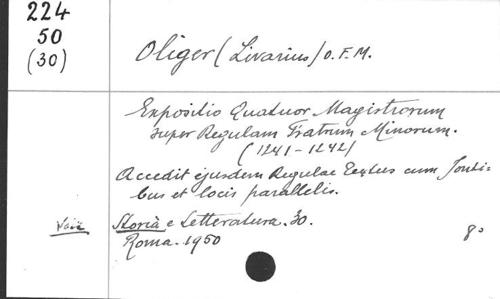 224
50
(30)
Oliger (Livarius) O.F.M.
Expositio Quatuor Magistrorum
super Regulam Fratrum Minorum.
(1241-1242)
Accedit ejusdem Regulae Textus cum fonti-
bus et locis parallelis.
Storia e Letteratura. 30.
Roma. 1950
8°